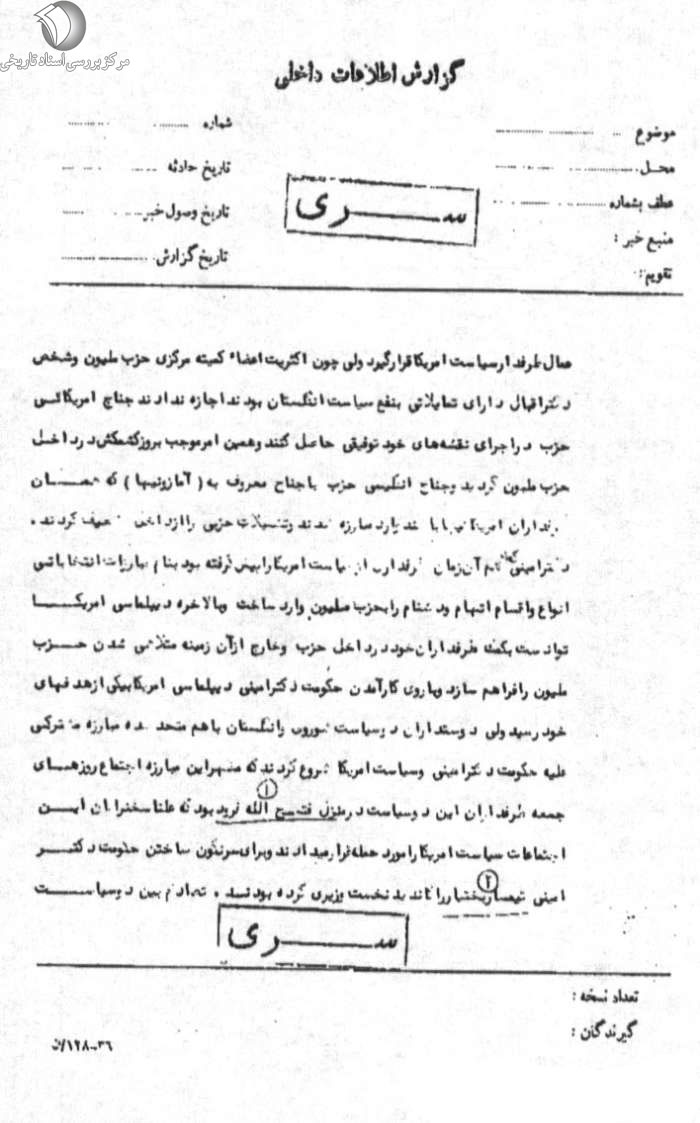 مرکز بررسی اسناد تاریخی
گزارش اطلاعات داخلی
موضوع
محل
عطف بشماره
منبع خبر :
تقویم :
شماره
تاریخ حادثه
تاریخ وصول خبر
تاریخ گزارش
ســری
عمال طرفدار سیاست امریکا قرار گیرد ولی چون اکثریت اعضاء کمیته مرکزی حزب ملیون وشخص
دکتر اقبال دارای تمایلاتی بنفع سیاست انگلستان بودند اجازه ندادند جناح امریکائی
حزب در اجرای نقشه‌های خود توفیقی حاصل کنند وهمین امر موجب بروز کشمکش در داخل
حزب ملیون گردید وجناح انگلیسی حزب با جناح معروف به ( آمازونیها ) که همان
طرفداران امریکا مبارزه وتشکیلات حزبی را از داخل ضعیف کردند .
دکتر امینی که از آن زمان طرفداری از سیاست امریکا را پیش گرفته بود بنام مبارزات انتخاباتی
انواع واقسام اتهام ودشنام را بحزب ملیون وارد ساخت وبالاخره دیپلماسی امریکا
توانست بکمک طرفداران خود در داخل حزب وخارج از آن زمینه متلاشی شدن حزب
ملیون را فراهم سازد وباروی کار آمدن حکومت دکتر امینی دیپلماسی امریکا بیکی از هدفهای
خود رسید ولی دوستداران دو سیاست شوروی وانگلستان باهم متحد شده مبارزه مشترکی
علیه حکومت دکتر امینی وسیاست امریکا شروع کردند که مظهر این مبارزه اجتماع روزهای
جمعه طرفداران این دو سیاست در منزل فتح الله فرود بود که علنا سخنرانان این
۱
اجتماعات سیاست امریکا را مورد حمله قرار میدادند وبرای سرنگون ساختن حکومت دکتر
امینی تیمسار بختیار را کاندید نخست وزیری کرده بودند . تصادم بین دو سیاست
۲
ســری
تعداد نسخه :
گیرندگان :
۱۲۸-۳۶/ن